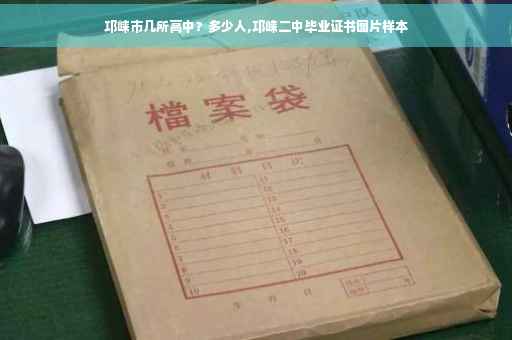 邛崃市几所高中？多少人,邛崃二中毕业证书图片样本
檔案袋
材料目次
1 11
2 12
3 13
4 14
5 15
6 16
7 17
8 18
9 19
10 20
年 月 日